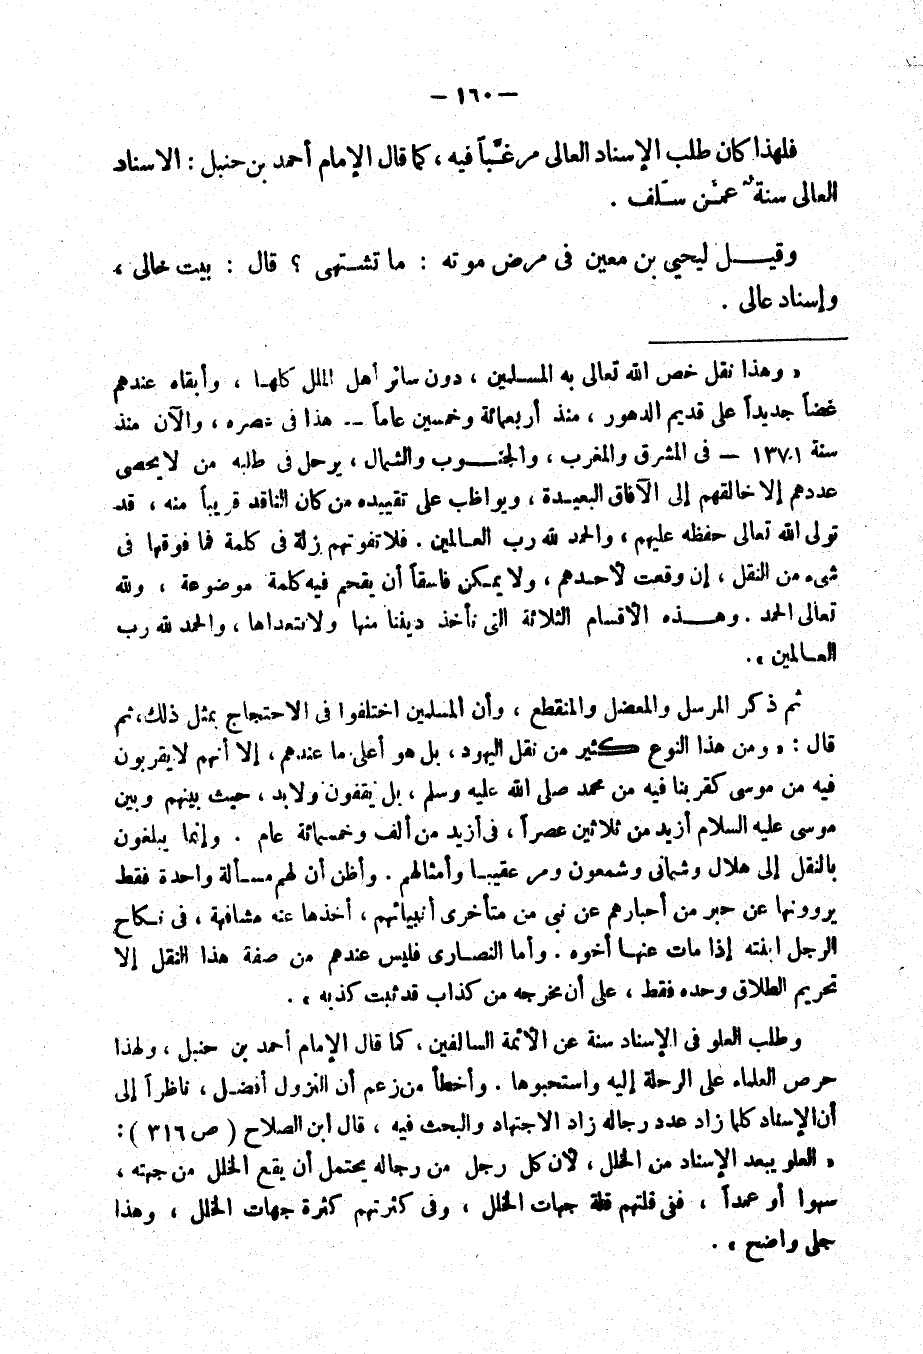 — ١٦٠ —
فلهذا كان طلب الإسناد العالى مرغَّباً فيه ، كما قال الإمام أحمد بن حنبل : الاسناد
العالى سنةٌ عمَّن سلَف .
وقيــل ليحيى بن معين فى مرض موته : ما تشتهى ؟ قال : بيت خالى ،
وإسناد عالى .
« وهذا نقل خص الله تعالى به المسلمين ، دون سائر أهل الملل كلها ، وأبقاه عندهم
غضاً جديداً على قديم الدهور ، منذ أربعمائة وخمسين عاماً -- هذا فى عصره ، والآن منذ
سنة ١٣٧٠١ — فى المشرق والمغرب ، والجنــوب والشمال ، يرحل فى طلبه من لا يحصى
عددهم إلا خالقهم إلى الآفاق البعيـدة ، ويواظب على تقييده من كان الناقد قريباً منه ، قد
تولى الله تعالى حفظه عليهم ، والحمد لله رب العـالمين . فلا تفوتهم زلة فى كلمة فما فوقها فى
شىء من النقل ، إن وقعت لأحـدهم ، ولا يمـكن فاسقاً أن يقحم فيه كلمة موضوعة ، ولله
تعالى الحمد . وهــذه الأقسام الثلاثة التى نأخذ ديننا منها ولا نتعداها ، والحمد لله رب
العـالمين » .
ثم ذكر المرسل والمعضل والمنقطع ، وأن المسلمين اختلفوا فى الاحتجاج بمثل ذلك ، ثم
قال : « ومن هذا النوع كثير من نقل اليهود ، بل هو أعلى ما عندهم ، إلا أنهم لا يقربون
فيه من موسى كقربنا فيه من محمد صلى الله عليه وسلم ، بل يقفون ولا بد ، حيث بينهم وبين
موسى عليه السلام أزيد من ثلاثين عصراً ، فى أزيد من ألف وخمسمائة عام . وإنما يبلغون
بالنقل إلى هلال وشمانى وشمعون ومر عقيبـا وأمثالهم . وأظن أن لهم مسـألة واحدة فقط
يروونها عن حبر من أحبارهم عن نبى من متأخرى أنبيائهم ، أخذها عنه مشافهة ، فى نـكاح
الرجل ابنته إذا مات عنهـا أخوه . وأما النصـارى فليس عندهم من صفة هذا النقل إلا
تحريم الطلاق وحده فقط ، على أن مخرجه من كذاب قد ثبت كذبه » .
وطلب العلو فى الإسناد سنة عن الأئمة السالفين ، كما قال الإمام أحمد بن حنبل ، ولهذا
حرص العلماء على الرحلة إليه واستحبوها . وأخطأ من زعم أن النزول أفضـل ، ناظراً إلى
أن الإسناد كلما زاد عدد رجاله زاد الاجتهاد والبحث فيه ، قال ابن الصلاح ( ص ٣١٦ ) :
« العلو يبعد الإسناد من الخلل ، لأن كل رجل من رجاله يحتمل أن يقع الخلل من جهته ،
سهوا أو عمداً ، ففى قلتهم قلة جهات الخلل ، وفى كثرتهم كثرة جهات الخلل ، وهذا
جلى واضح » .